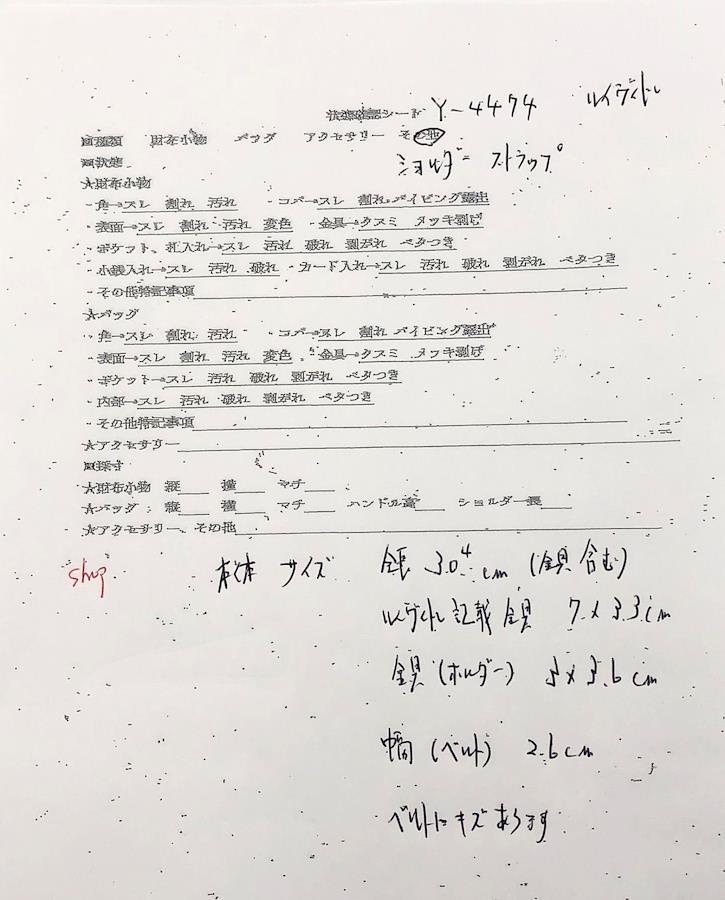 状態確認シート Y-4474 ルイヴィトン
■種類 財布小物 バッグ アクセサリー その他
■状態 ショルダー ストラップ
★財布小物
・角→スレ 割れ 汚れ ・コバ→スレ 割れ パイピング露出
・表面→スレ 割れ 汚れ 変色 ・金具→クスミ メッキ剥げ
・ポケット、札入れ→スレ 汚れ 破れ 剥がれ ベタつき
・小銭入れ→スレ 汚れ 破れ ・カード入れ→スレ 汚れ 破れ 剥がれ ベタつき
・その他特記事項
★バッグ
・角→スレ 割れ 汚れ ・コバ→スレ 割れ パイピング露出
・表面→スレ 割れ 汚れ 変色 ・金具→クスミ メッキ剥げ
・ポケット→スレ 汚れ 破れ 剥がれ ベタつき
・内部→スレ 汚れ 破れ 剥がれ ベタつき
・その他特記事項
★アクセサリー
■採寸
★財布小物 縦 横 マチ
★バッグ 縦 横 マチ ハンドル高 ショルダー長
★アクセサリー、その他
shop 本体 サイズ 全長 cm (金具含む)
ルイヴィトン記載金具 7×3.3cm
金具(ホルダー) 3.6cm
幅(ベルト) 2.6cm
ベルトにキズあります